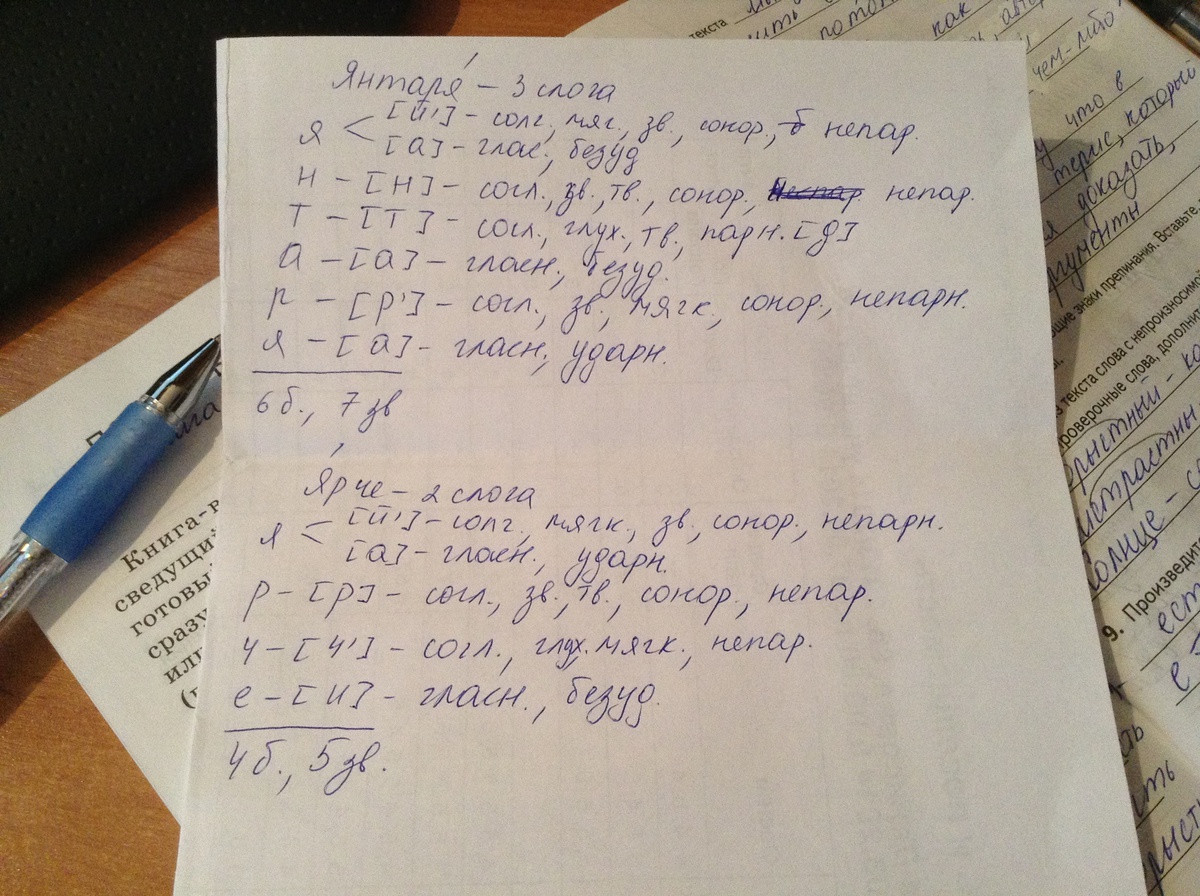 Января́ – 3 слога
я < [й'] – солг, мяг., зв., сонор., непар.
[а] – глас., безуд
н – [н] – согл., зв., тв., сонор., непар.
т – [т] – согл., глух., тв., парн. [д]
а – [а] – гласн., безуд.
р – [р'] – согл., зв., мягк., сонор., непарн.
я – [а] – гласн., ударн.
6 б., 7 зв
Я́рче – 2 слога
я < [й'] – солг., мягк., зв., сонор., непарн.
[а] – гласн., ударн.
р – [р] – согл., зв., тв., сонор., непар.
ч – [ч'] – согл., глух. мягк., непар.
е – [и] – гласн., безуд.
4 б., 5 зв.
Книга-
сведущий
готовы
сразу
или
текста
как
потом
чем-либо
что в
который
доказать,
знаки препинания. Вставьте
из текста слова с непроизносимо
проверочные слова, дополнит
9. Произведит